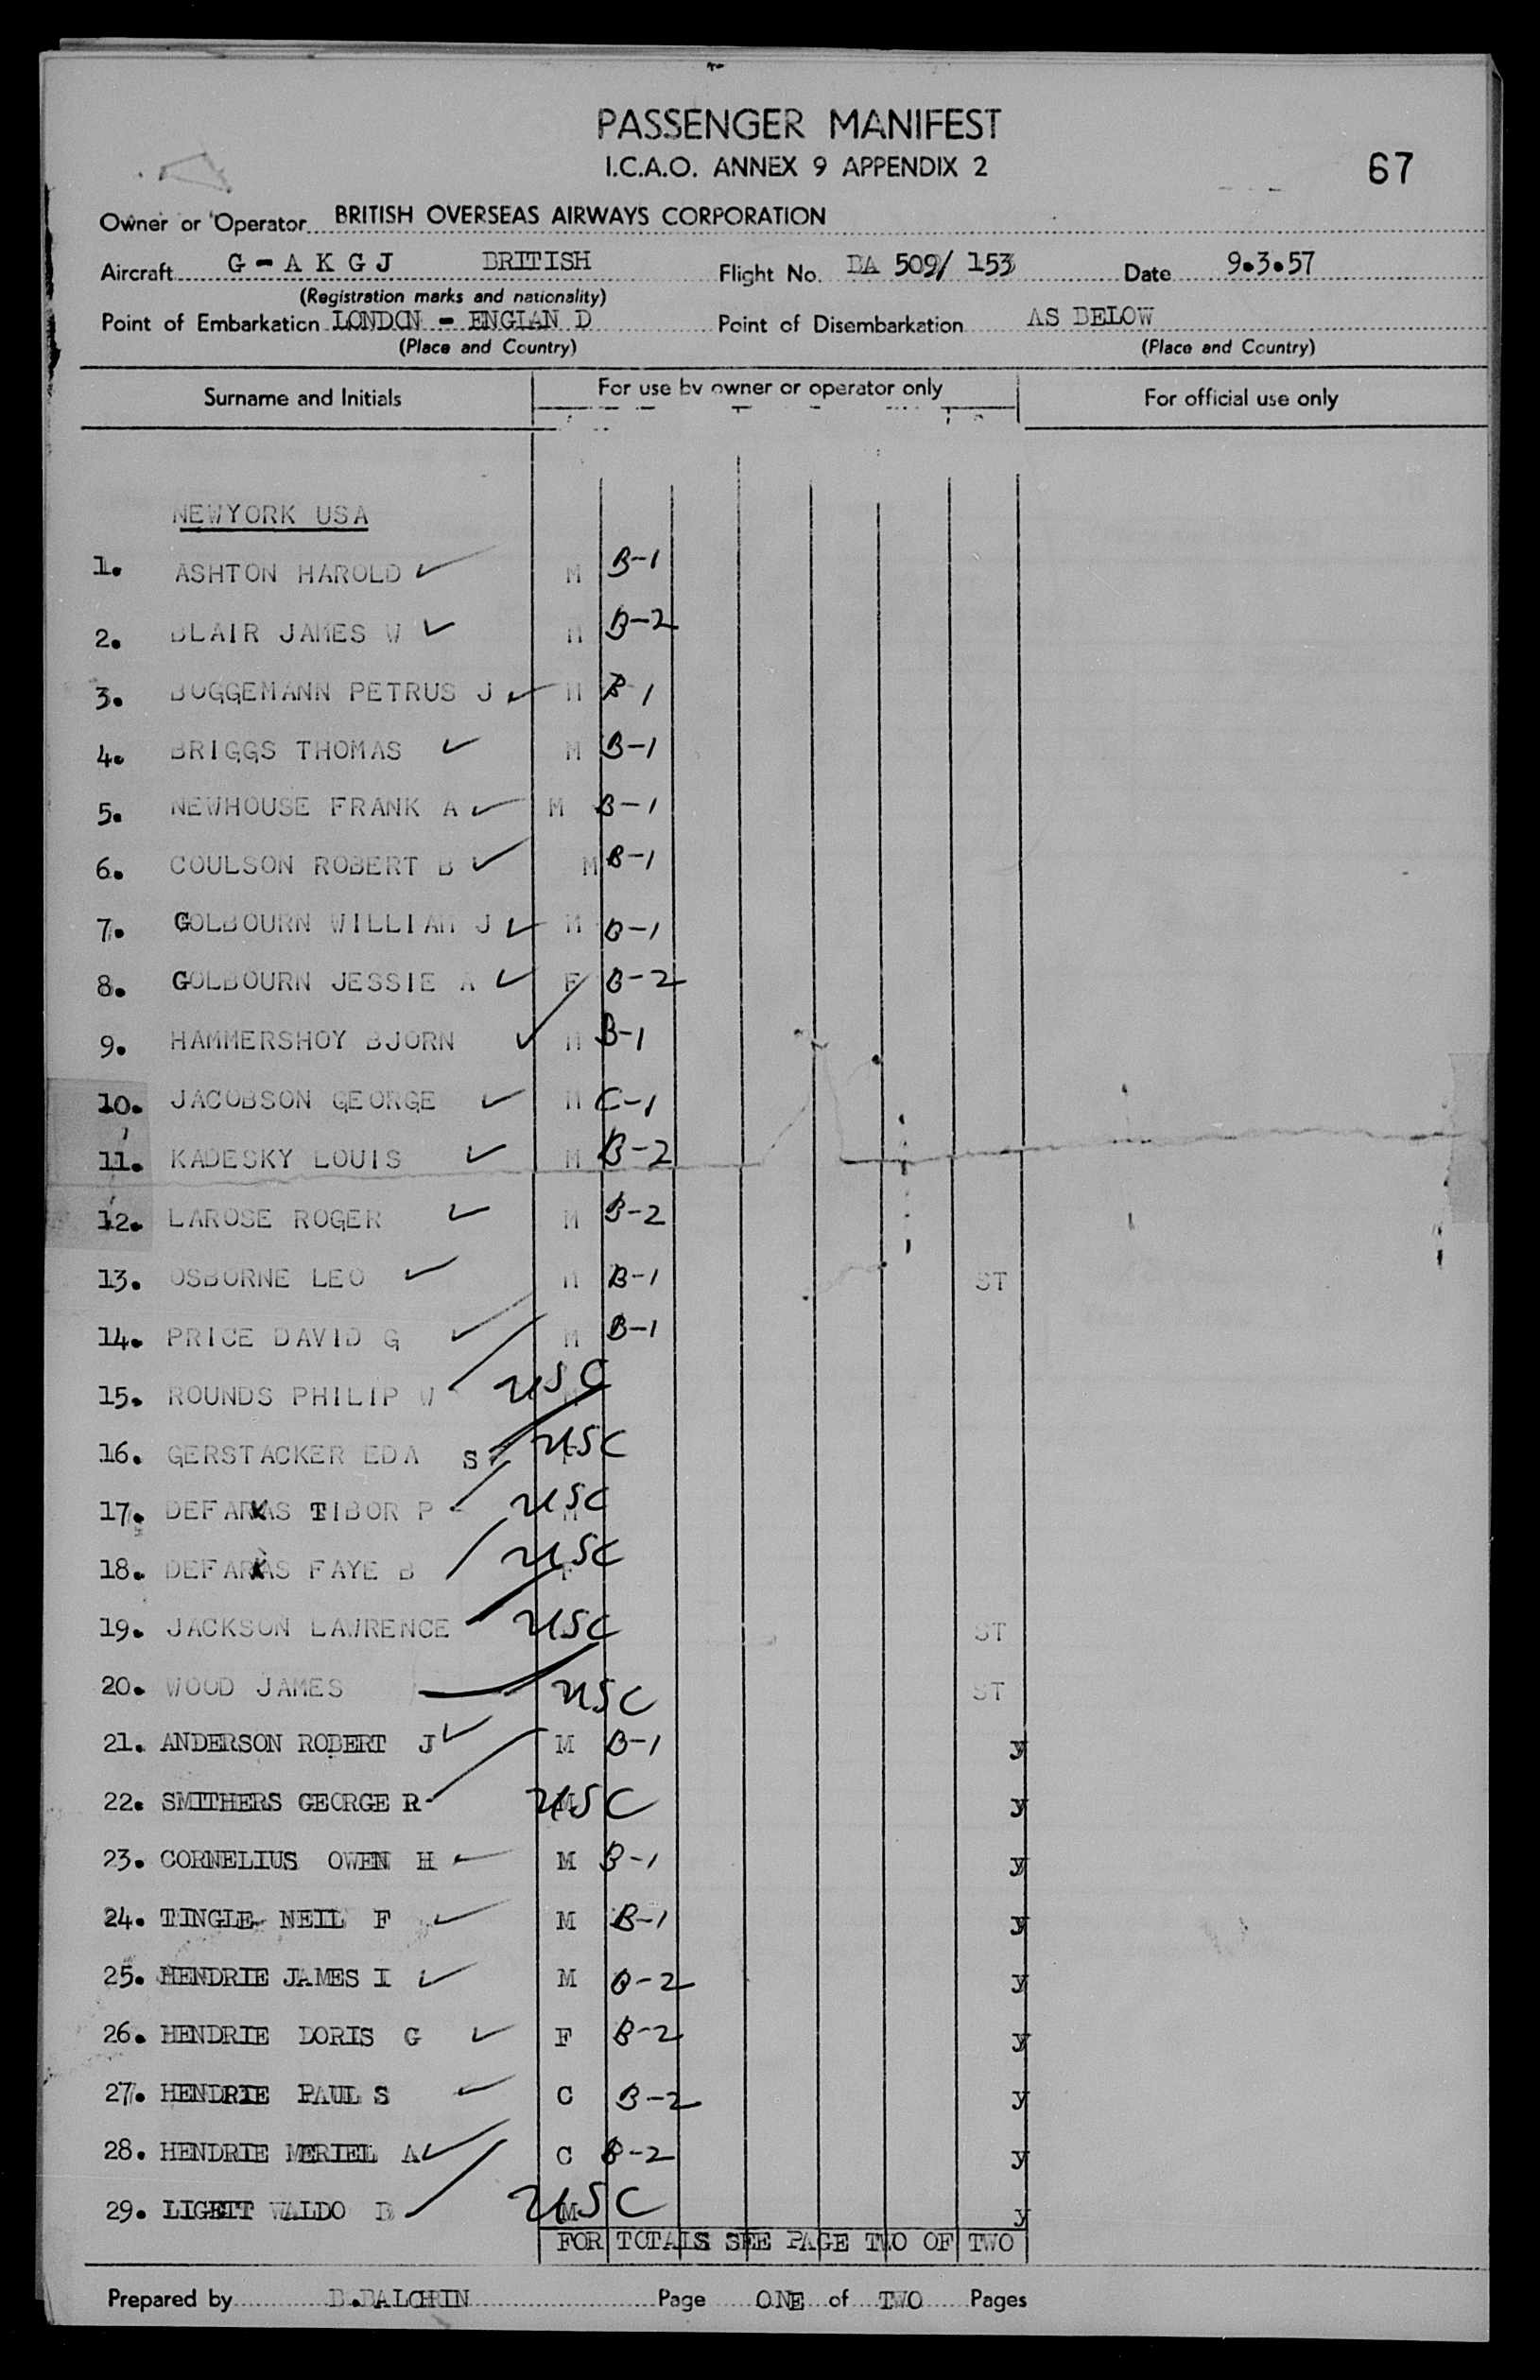 PASSENGER MANIFEST
I.C.A.O. ANNEX 9 APPENDIX 2
67
Owner or Operator BRITISH OVERSEAS AIRWAYS CORPORATION
Aircraft G-AKGJ BRITISH Flight No. BA 509/153 Date 9.3.57
(Registration marks and nationality)
Point of Embarkation LONDON - ENGLAN D Point of Disembarkation AS BELOW
(Place and Country) (Place and Country)
Surname and Initials For use by owner or operator only For official use only
NEWYORK USA
1. ASHTON HAROLD M B-1
2. BLAIR JAMES W M B-2
3. BUGGEMANN PETRUS J M B-1
4. BRIGGS THOMAS M B-1
5. NEWHOUSE FRANK A M B-1
6. COULSON ROBERT B M B-1
7. GOLBOURN WILLIAM J M B-1
8. GOLBOURN JESSIE A F B-2
9. HAMMERSHOY BJORN M B-1
10. JACOBSON GEORGE M C-1
11. KADESKY LOUIS M B-2
12. LAROSE ROGER M B-2
13. OSBORNE LEO M B-1 ST
14. PRICE DAVID G M B-1
15. ROUNDS PHILIP W M USC
16. GERSTACKER EDA S F USC
17. DEFARKAS TIBOR P M USC
18. DEFARKAS FAYE B F USC
19. JACKSON LAWRENCE USC ST
20. WOOD JAMES USC ST
21. ANDERSON ROBERT J M B-1 y
22. SMITHERS GEORGE R M USC y
23. CORNELIUS OWEN H M B-1 y
24. TINGLE NEIL F M B-1 y
25. HENDRIE JAMES I M B-2 y
26. HENDRIE DORIS G F B-2 y
27. HENDRIE PAUL S C B-2 y
28. HENDRIE MERIEL A C B-2 y
29. LIGETT WALDO B M USC y
FOR TOTALS SEE PAGE TWO OF TWO
Prepared by B.BALCHIN Page ONE of TWO Pages